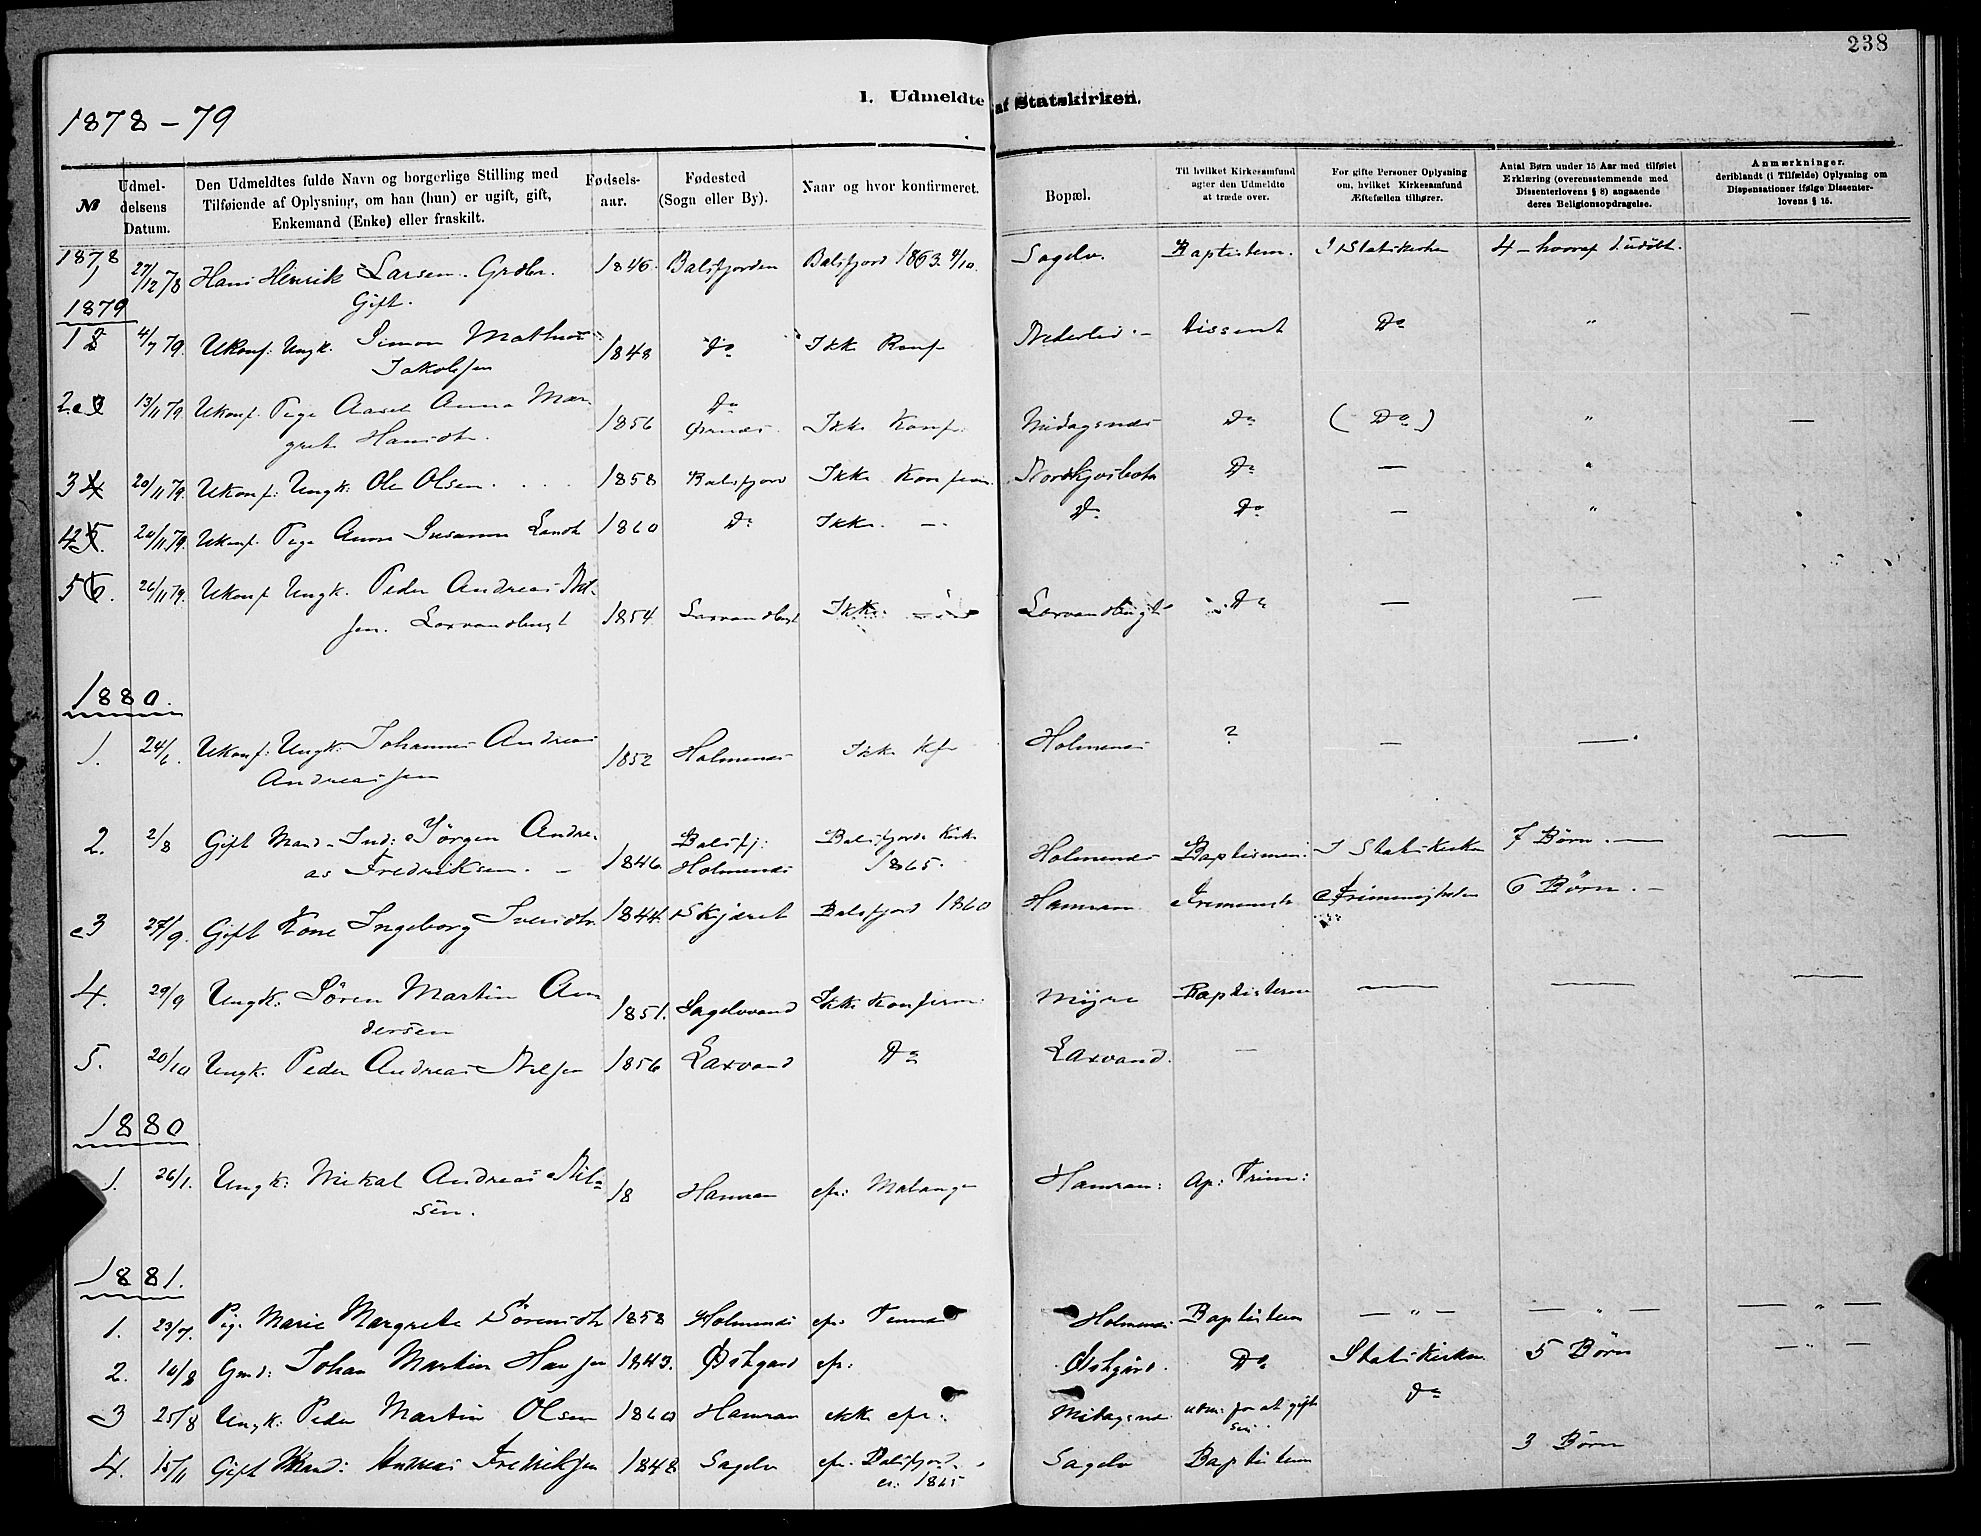 238
1. Udmeldte af Statskirken.
1878-79
№ | Udmeldelsens Datum. | Den Udmeldtes fulde Navn og borgerlige Stilling med Tilføiende af Oplysning, om han (hun) er ugift, gift, Enkemand (Enke) eller fraskilt. | Fødselsaar. | Fødested (Sogn eller By). | Naar og hvor konfirmeret. | Bopæl. | Til hvilket Kirkesamfund agter den Udmeldte at træde over. | For gifte Personer Oplysning om, hvilket Kirkesamfund Ægtefællen tilhører. | Antal Børn under 15 Aar med tilføiet Erklæring (overensstemmende med Dissenterlovens § 8) angaaende deres Religionsopdragelse. | Anmærkninger. deriblandt (i Tilfælde) Oplysning om Dispensationer ifølge Dissenterlovens § 15.
1878
1 27/12 78 Hans Henrik Larsen. Grdbr. 1846. Balsfjorden Balsfjord 1863. Sagelv. Baptistern. I Statskirken 4 - hvoraf 1 udøbt.
Gift.
1879
1 2 4/7 79. Ukonf. Ungk. Simon Mathias 1848 Do Ikke Konf Nederlid. - Dissent Do " —
Jakobsen
2. 3 13/11 79 Ukonf. Pige Aasel Anna Mar- 1856 Do Ikke Konf. Midagsnes Do (Do) " —
grete Hansdtr.
3 4 20/11 79. Ukonf. Ungk. Ole Olsen. . . . 1858 Balsfjord Ikke Konfirm. Nordkjosbotn Do — "
4 5. 20/11 79. Ukonf. Pige Anne Susanna Larsdtr 1860 Do Ikke. —. Do Do — "
5 6. 26/11 79. Ukonf Ungk. Peder Andreas Nil- 1854 Laxvandbugt Ikke. Laxvandbugt Do — —
sen. Laxvandbugt
1880.
1. 24/6. Ukonf: Ungk: Johannes Andreas 1852 Holmenes Ikke Kfr Holmenes ? — —
Andreassen
2. 2/8 Gift Mand - Ind: Jørgen Andre- 1846 Balsfj: Holmenes Balsfjords Kirke 1865. Holmenes Baptismen. I Statskirken 7 Børn. — —
as Fredriksen. -
3 27/9. Gift Kone Ingeborg Iversdtr. 1844. Skjæret Balsfjord 1860 Hamran 6 Børn. -
4. 29/9 Ungk: Sören Martin An 1851. Sagelvvand Ikke Konfirm: Myre Baptistern — — —
dersen
5. 20/10 Ungk. Peder Andreas Nilsen 1856 Laxvand Do Laxvand. —
1880
1. 26/1. Ungk: Mikal Andreas Nil- 18 Hamran cfr: Malangen Hamran: Ap: Frim:
sen.
1881.
1. 23/7. Pige Marie Margrete Sörensdtr 1858 Holmenes cfr. Holmenes Baptistern — " — — " — — " —
2. 16/8 Gmd: Johan Martin Hansen 1843. Østgaard cfr: Østgård. Do Statskirken. 5 Børn — " —
3 25/8 Ungk: Peder Martin Olsen 1860 Hamran ikke cfr: Midagsnes udm: for at gifte sig Do
4. 15/11 Gift Mand: Andreas Fredriksen 1848 Sagelv cfr. Balsfjord. 1865 Sagelv Baptistern 3 Børn